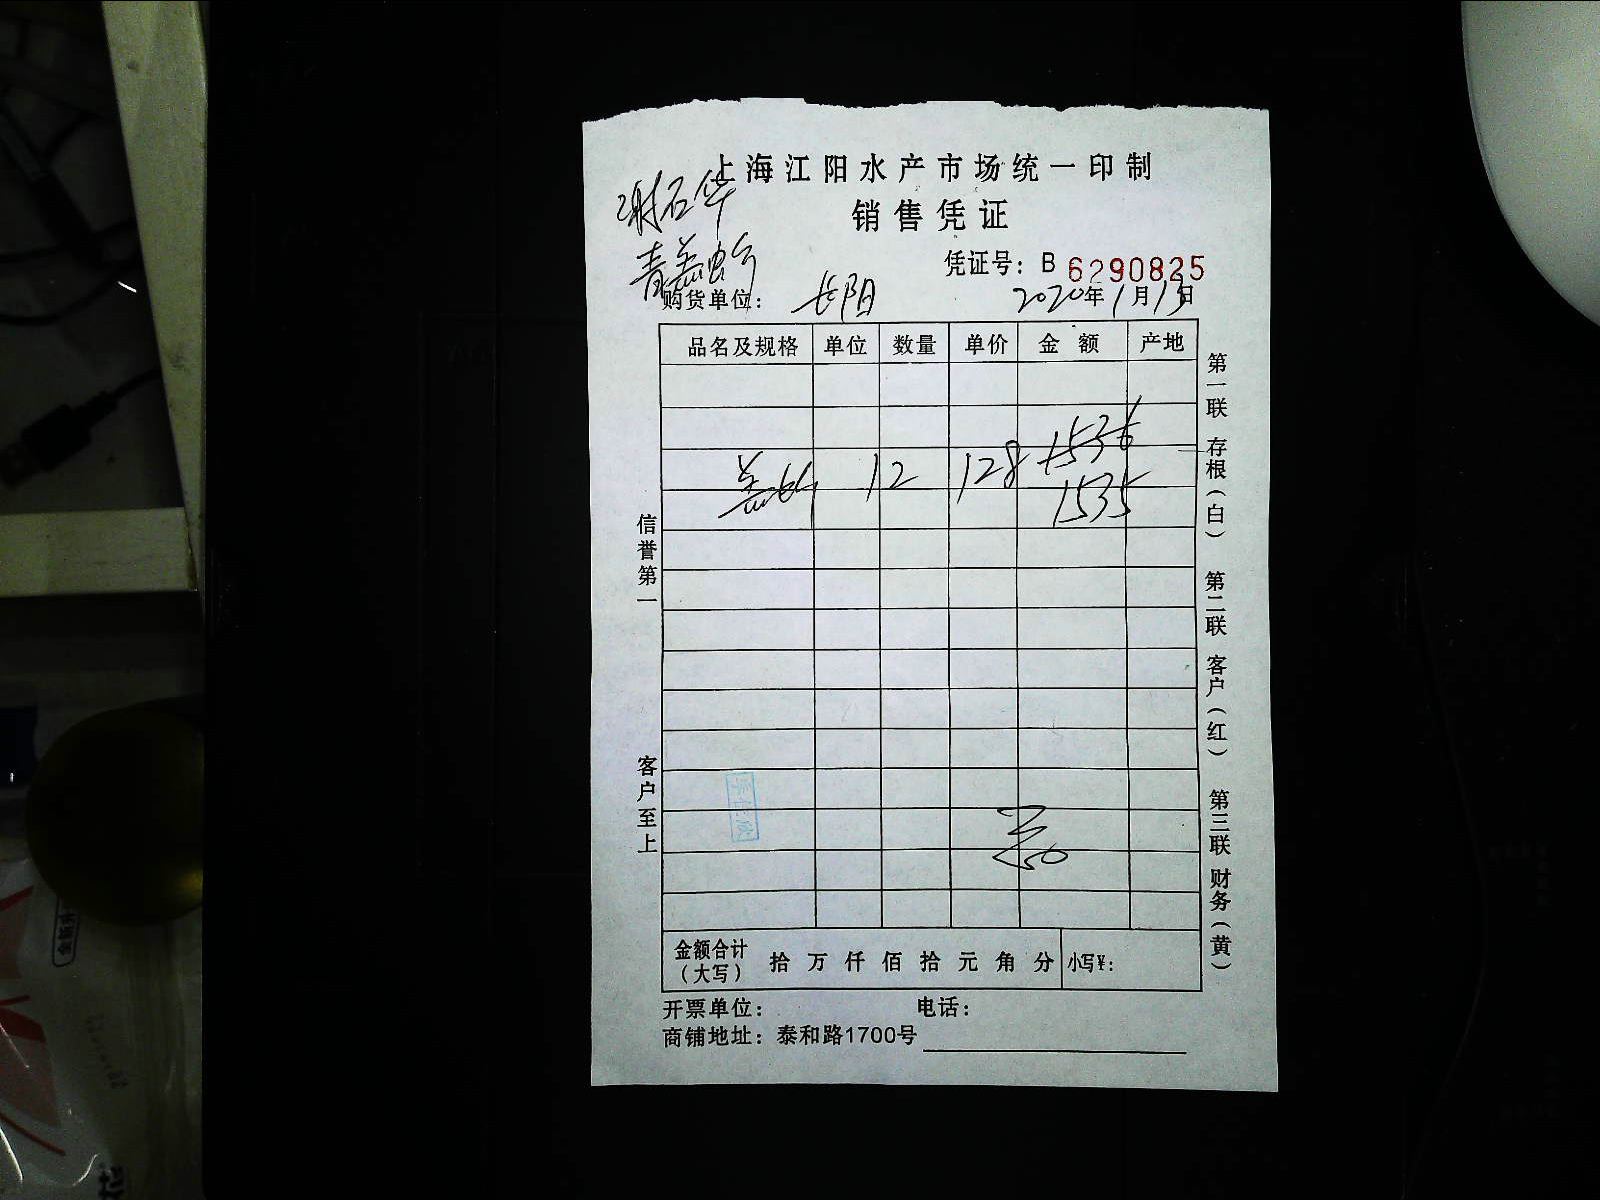 上海江阳水产市场统一印制
谢石华
销售凭证
青羔蛤
凭证号：B 6290825
购货单位： 长阳 2020年1月13日
品名及规格 单位 数量 单价 金额 产地
12 128 1536
1535
信誉第一
客户至上
第一联 存根（白） 第二联 客户（红） 第三联 财务（黄）
金额合计（大写） 拾 万 仟 佰 拾 元 角 分 小写¥：
开票单位： 电话：
商铺地址：泰和路1700号